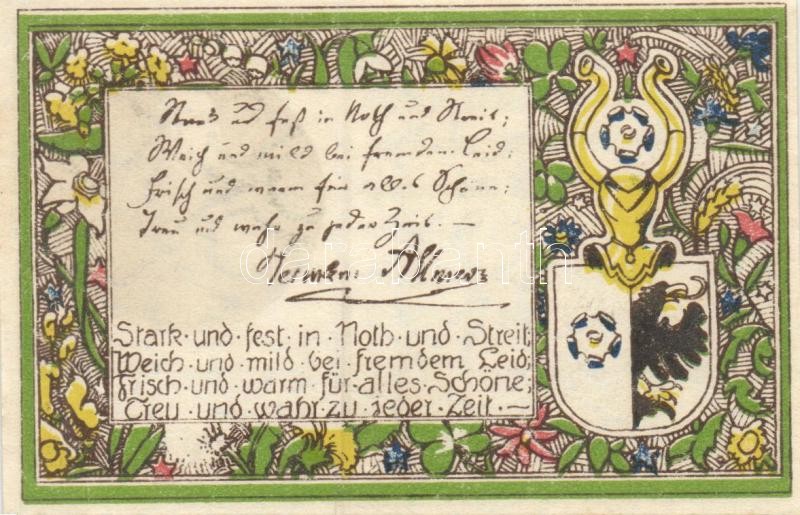 Stark und fest in Noth und Streit;
Weich und mild bei fremdem Leid;
Frisch und warm für alles Schöne;
Treu und wahr zu jeder Zeit. —
Hermann Allmers
Stark · und · fest · in · Noth · und · Streit;
Weich · und · mild · bei · fremdem · Leid;
frisch · und · warm · für · alles · Schöne;
Treu · und · wahr · zu · jeder · Zeit. —
darabanth